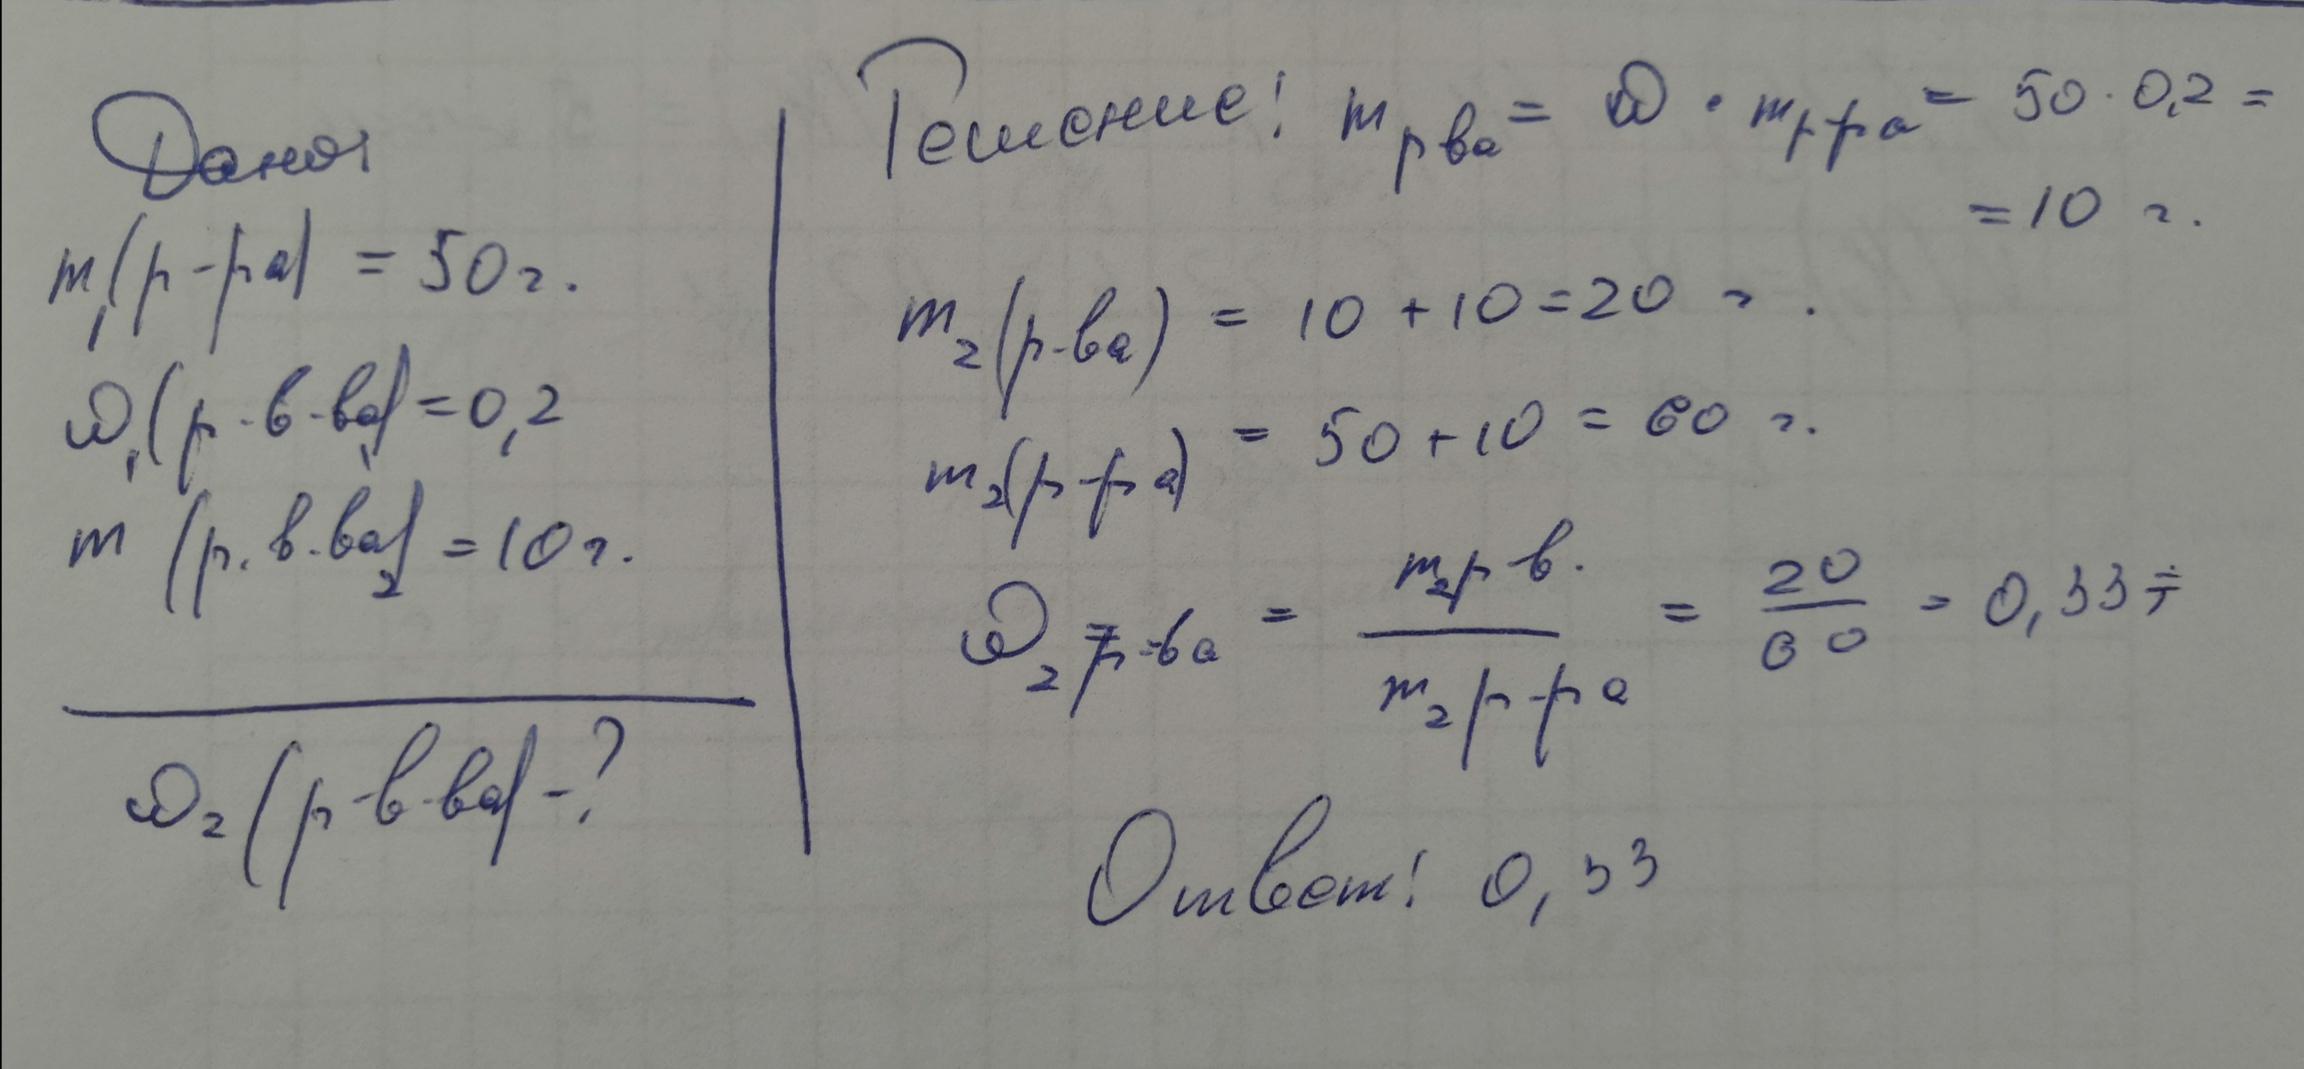 Дано:
m₁(р-ра) = 50 г.
ω₁(р-в-ва)₁ = 0,2
m (р.в-ва)₂ = 10 г.
ω₂(р-в-ва) - ?
Решение: m р ва = ω · m р р а = 50 · 0,2 =
= 10 г.
m₂(р-ва) = 10 + 10 = 20 г.
m₂(р-ра) = 50 + 10 = 60 г.
ω₂ р-ва = m₂р-в. / m₂ р-ра = 20 / 60 = 0,33
Ответ: 0,33